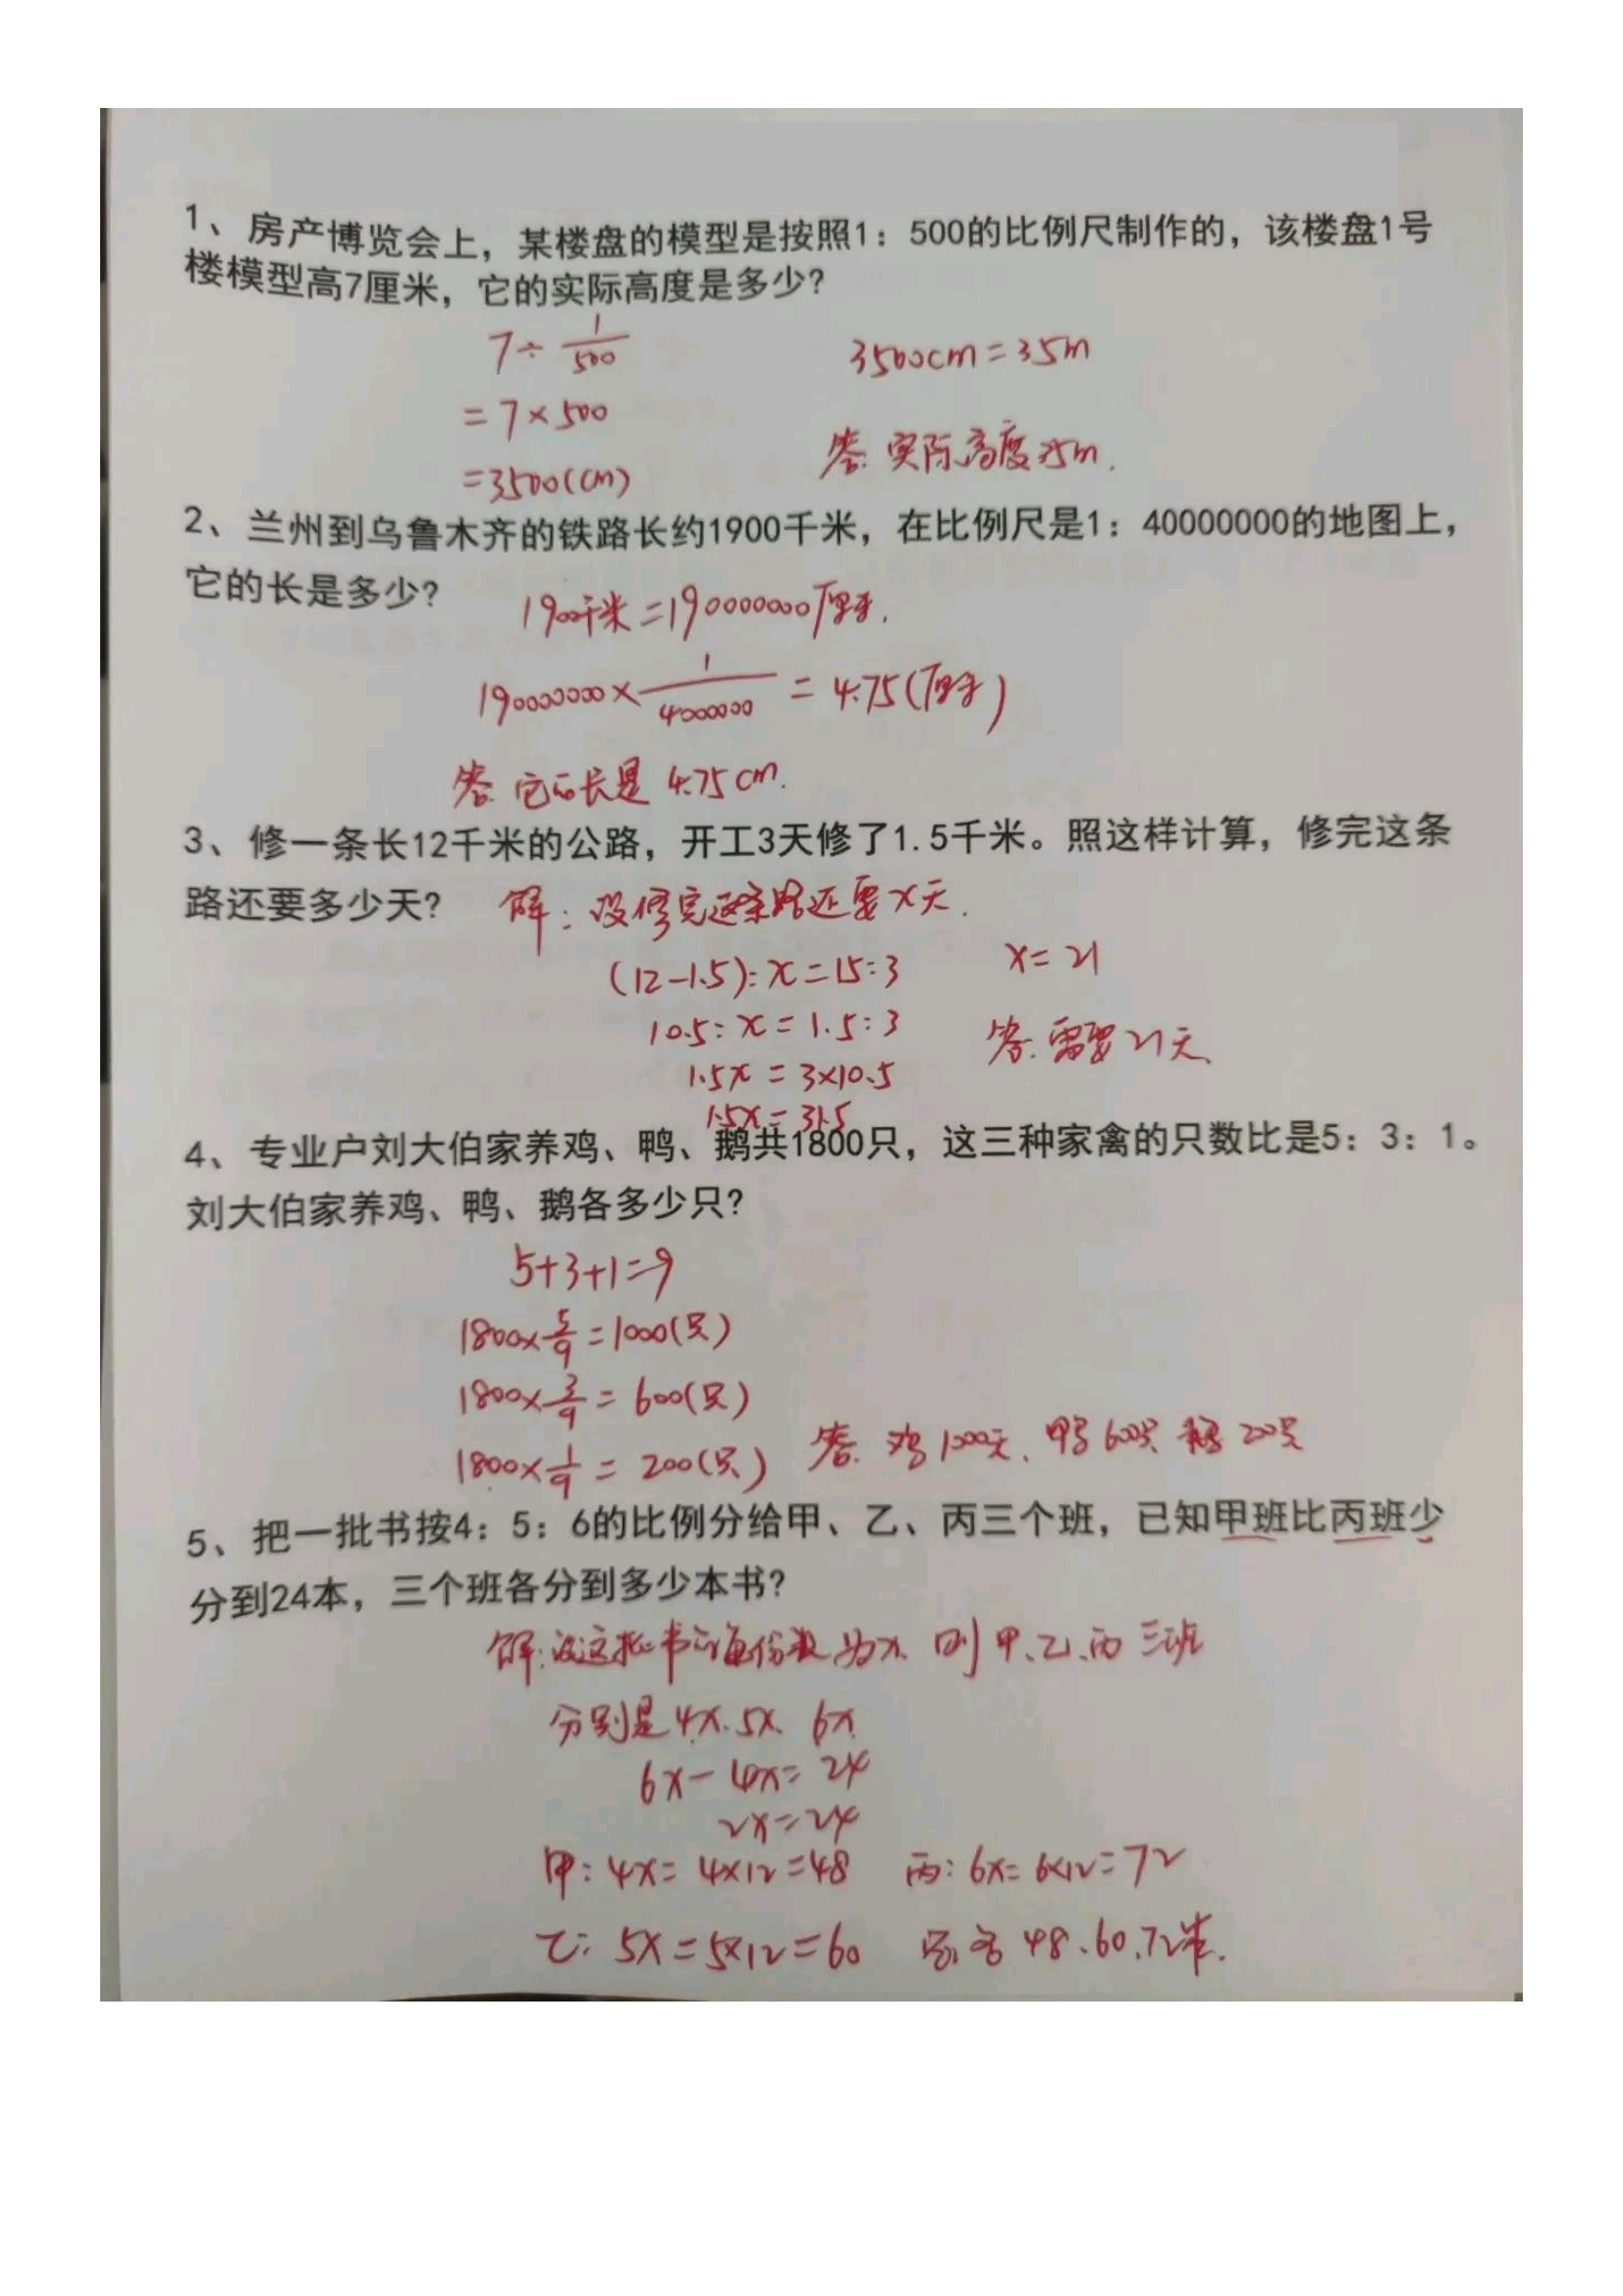 1、房产博览会上，某楼盘的模型是按照1：500的比例尺制作的，该楼盘1号
楼模型高7厘米，它的实际高度是多少?
7÷1/500
3500cm=35m
=7×500
答:实际高度35m.
=3500(cm)
2、兰州到乌鲁木齐的铁路长约1900千米，在比例尺是1：40000000的地图上，
它的长是多少?
1900千米=190000000厘米.
190000000×1/40000000=4.75(厘米)
答:它的长是4.75cm.
3、修一条长12千米的公路，开工3天修了1.5千米。照这样计算，修完这条
路还要多少天?
解:设修完这条路还要x天.
(12-1.5):x=15:3
x=21
10.5:x=1.5:3
答:需要21天.
1.5x=3×10.5
1.5x=31.5
4、专业户刘大伯家养鸡、鸭、鹅共1800只，这三种家禽的只数比是5：3：1。
刘大伯家养鸡、鸭、鹅各多少只?
5+3+1=9
1800×5/9=1000(只)
1800×3/9=600(只)
1800×1/9=200(只)
答:鸡1000天、鸭600只 鹅200只
5、把一批书按4：5：6的比例分给甲、乙、丙三个班，已知甲班比丙班少
分到24本，三个班各分到多少本书?
解:设这批书的每份数为x.则甲、乙、丙三班
分别是4x.5x.6x
6x-4x=24
2x=24
甲:4x=4×12=48
丙:6x=6×12=72
乙:5x=5×12=60
各48、60、72本.